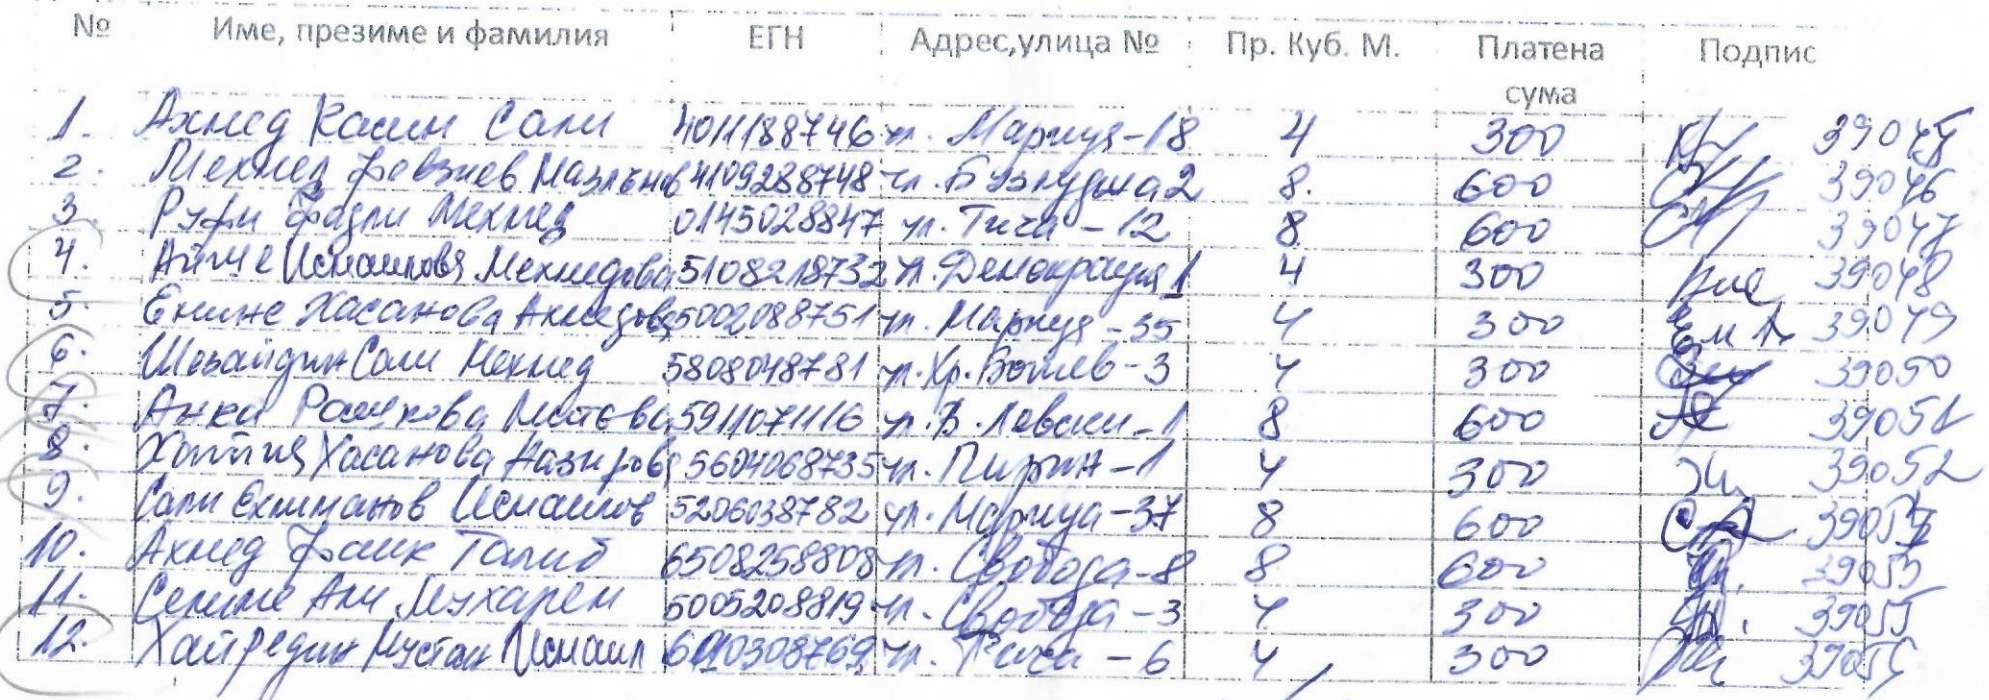 № Име, презиме и фамилия ЕГН Адрес,улица № Пр. Куб. М. Платена сума Подпис
1. Ахмед Касим Сали 4011188746 ул. Марица-18 4 300 39045
2. Мехмед Февзиев Мазлъмов 4109288748 ул. Бузлуджа 2 8. 600 39046
3. Руфи Фадли Мехмед 0145028847 ул. Тича - 12 8 600 39047
4. Айше Исмаилова Мехмедова 5108218732 ул. Демокрация 1 4 300 39048
5. Емине Хасанова Ахмедова 5002088751 ул. Марица - 35 4 300 39049
6. Сали Мехмед 5808048781 ул. Хр. Ботев - 3 4 300 39050
7. Анка Рашкова Митева 5911071116 ул. В. Левски - 1 8 600 39051
8. Хатидже Хасанова Назирова 5604068735 ул. Пирин - 1 4 300 39052
9. Сали Исмаилов 5206038782 ул. Марица - 37 8 600
10. Ахмед Фаик Талиб 6508258808 ул. Свобода - 8 8 600 39053
11. Селиме Али Мухарем 5005208819 ул. Свобода - 3 4 300 39055
12. Хайредин Мустан Исмаил ул. Тича - 6 4 300